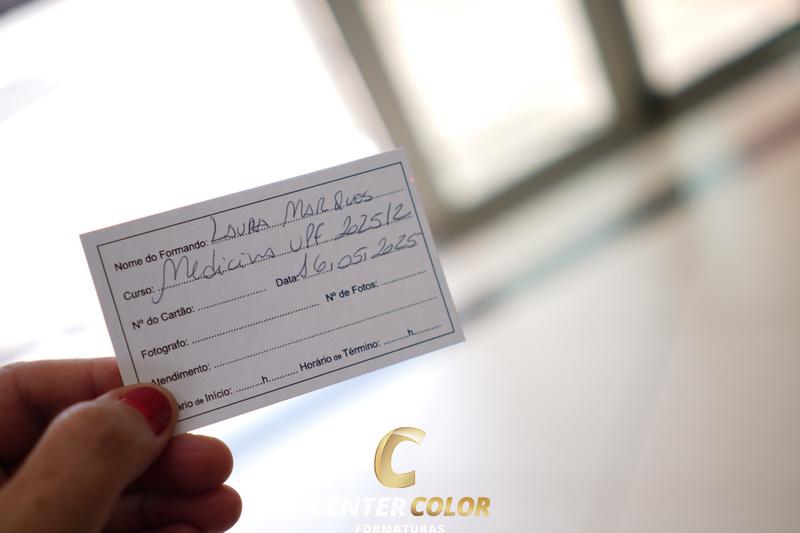 Nome do Formando: LAURA MARQUES
Curso: Medicina UPF 2025/2
Nº do Cartão: Data: 16.05.2025
Fotografo: Nº de Fotos:
Atendimento:
ário de Início: h Horário de Término: h
C
CENTER COLOR
FORMATURAS